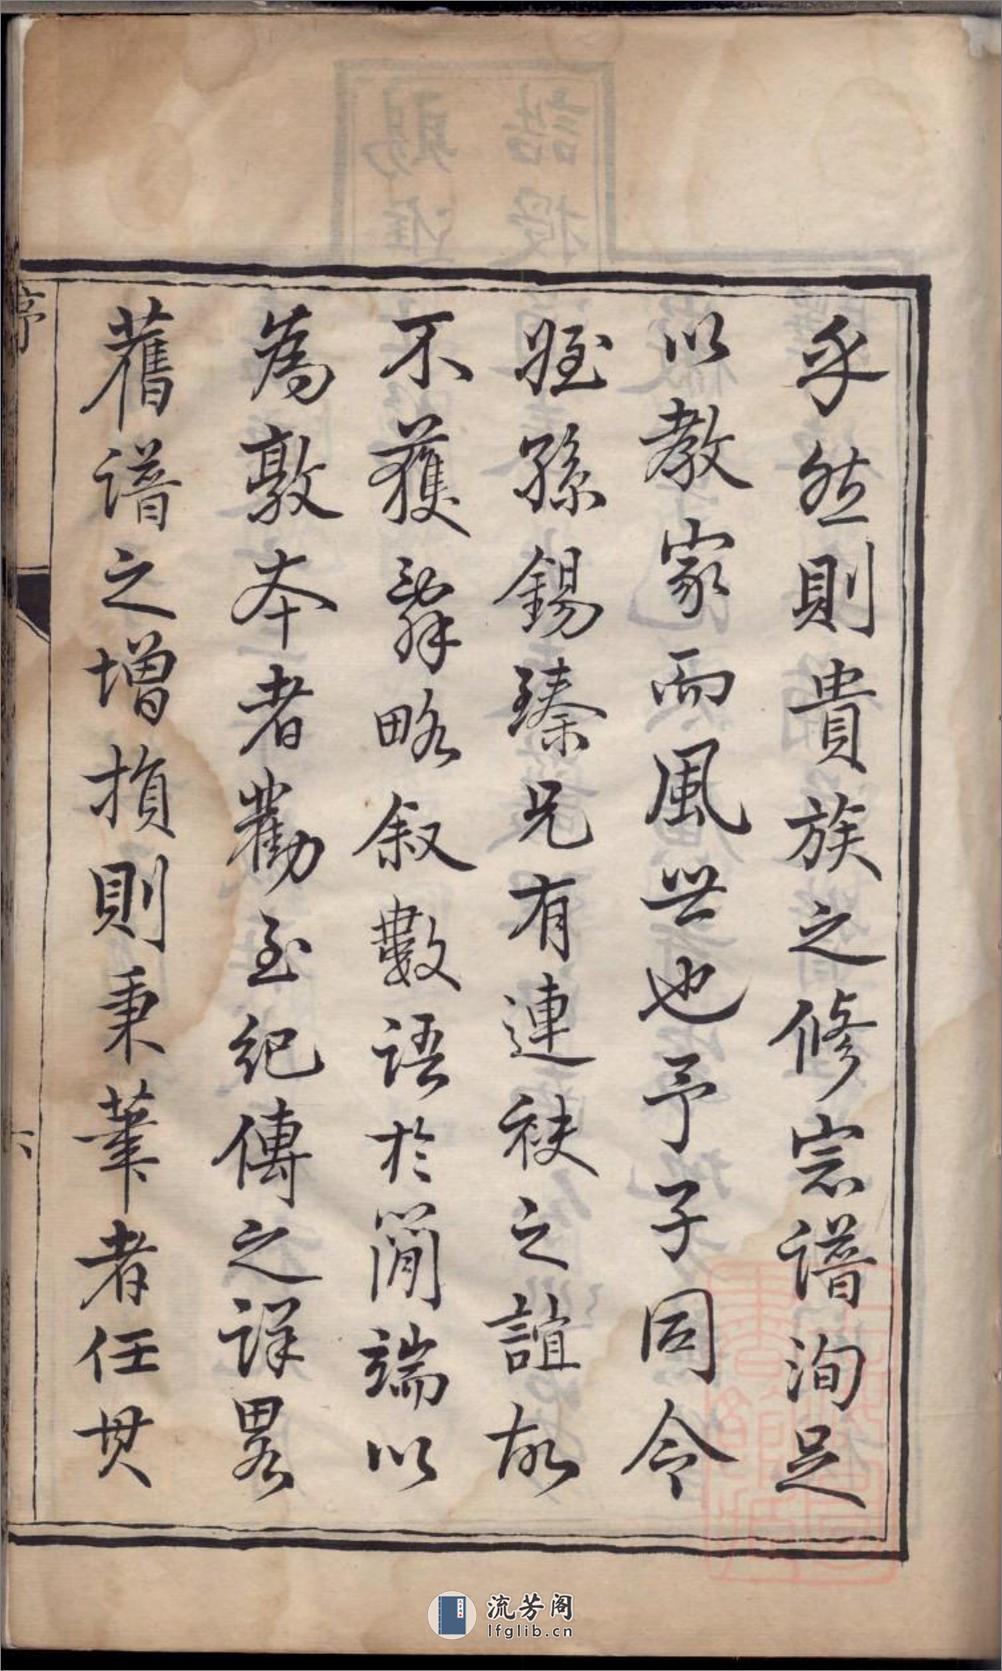 乎然則貴族之修宗譜洵足
以教家而風世也予子同令
姪孫錫臻兄有連袂之誼故
不獲辭略叙數語於簡端以
為敦本者勸至紀傳之詳畧
舊譜之增損則秉筆者任贯
序
六
流芳阁
lfglib.cn